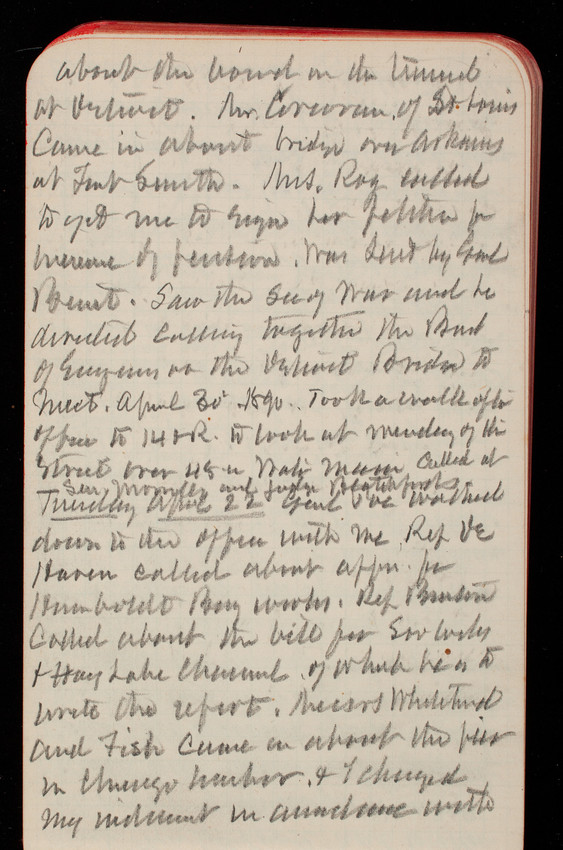 about the board on the tunnel
at Detroit. Mr. Corcoran, of St. Louis
Came in about bridge over Arkansas
at Fort Smith. Mrs. Roy called
to get me to sign her petition for
increase of pension. Was sent by Genl
Benet. Saw the Sec of War and he
directed calling together the Board
of Engineers on the Detroit Bridge to
Meet. April 30 1890. Took a walk after
office to 14 & R. to look at mending of the
Street over 48 in Water Main. Called at
Sen. and
Tuesday April 22 Genl walked
down to the office with me. Rep De
Haven called about appn. for
Humboldt Bay works. Rep
Called about the bill for Soo locks
& Hay Lake Channel, of which he is to
write the report. Messrs
and Fish Came in about the pier
in Chicago harbor, & I changed
my in accordance with